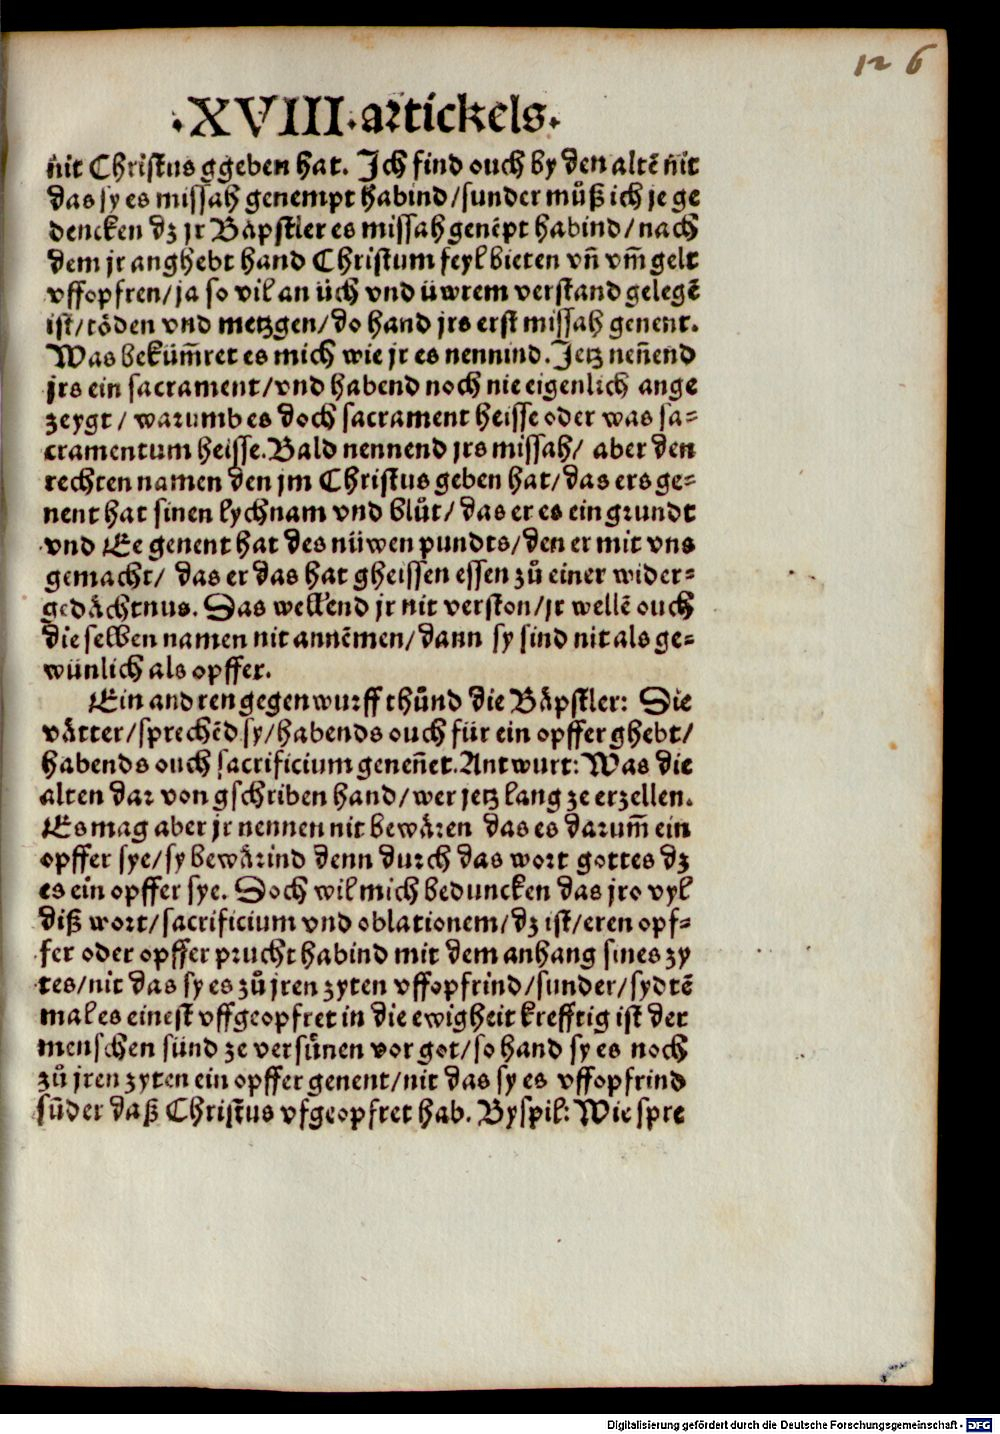 12 6
·XVIII·artickels·
nit Christus ggeben hat. Ich find ouch by den altē nit
das sy es missah genempt habind/sunder můß ich je ge
dencken dz jr Bäpstler es missah genēpt habind/nach
dem jr anghebt hand Christum feyl bieten vn̄ vm̄ gelt
vffopfren/ja so vil an üch vnd üwrem verstand gelegē
ist/töden vnd metzgen/do hand jrs erst missah genent.
Was beküm̄ret es mich wie jr es nennind. Jetz nen̄end
jrs ein sacrament/vnd habend noch nie eigenlich ange
zeygt/ warumb es doch sacrament heisse oder was sa-
cramentum heisse. Bald nennend jrs missah/ aber den
rechten namen den jm Christus geben hat/das ers ge-
nent hat sinen lychnam vnd blůt/das er es ein grundt
vnd Ee genent hat des nüwen pundts/den er mit vns
gemacht/ das er das hat gheissen essen zů einer wider-
gedächtnus. Das wellend jr nit verston/jr wellē ouch
die selben namen nit annēmen/dann sy sind nit als ge-
wünlich als opffer.
Ein andren gegenwurff thůnd die Bäpstler: Die
vätter/sprechēd sy/habends ouch für ein opffer ghebt/
habends ouch sacrificium genen̄et. Antwurt: Was die
alten dar von gschriben hand/wer jetz lang ze erzellen.
Es mag aber jr nennen nit bewären das es darum̄ ein
opffer sye/sy bewärind denn durch das wort gottes dz
es ein opffer sye. Doch wil mich beduncken das jro vyl
diß wort/sacrificium vnd oblationem/dz ist/eren opf-
fer oder opffer prucht habind mit dem anhang sines zy
tes/nit das sy es zů jren zyten vffopfrind/sunder/sydtē
mal es einest vffgeopfret in die ewigheit krefftig ist der
menschen sünd ze versůnen vor got/so hand sy es noch
zů jren zyten ein opffer genent/nit das sy es vffopfrind
sūder daß Christus vfgeopfret hab. Byspil: Wie spre
Digitalisierung gefördert durch die Deutsche Forschungsgemeinschaft - DFG